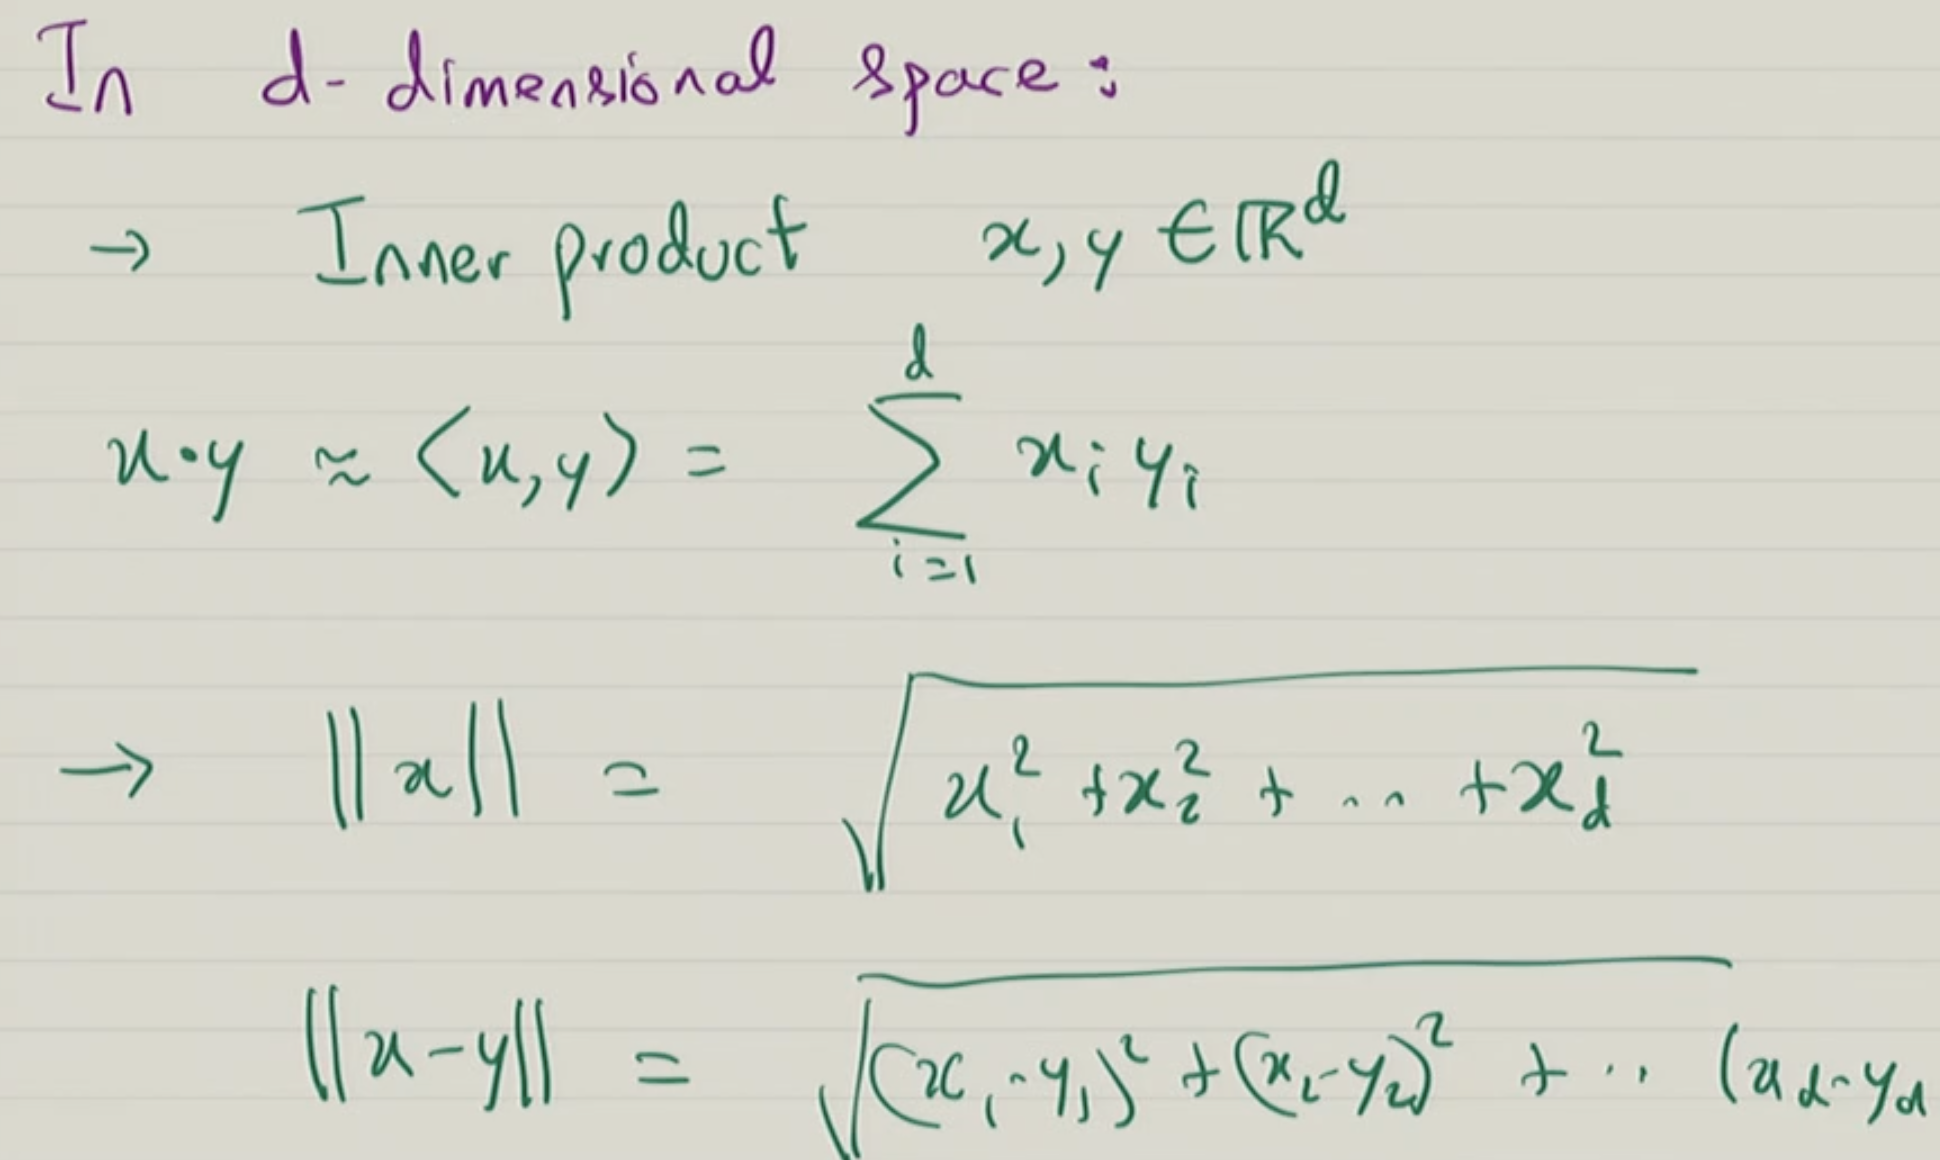 In d-dimensional space:
→ Inner product x, y ∈ ℝ^d
x·y ≈ ⟨x, y⟩ = ∑_{i=1}^{d} x_i y_i
→ ||x|| = √(x_1^2 + x_2^2 + .. + x_d^2)
||x-y|| = √((x_1-y_1)^2 + (x_2-y_2)^2 + .. (x_d-y_d